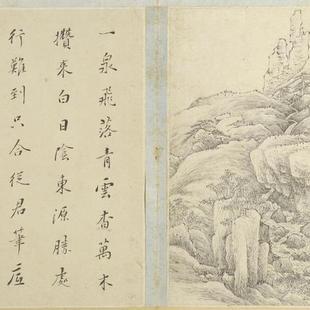 一泉飛落青雲杳萬木
攢來白日陰東源勝處
行難到只合從君筆底